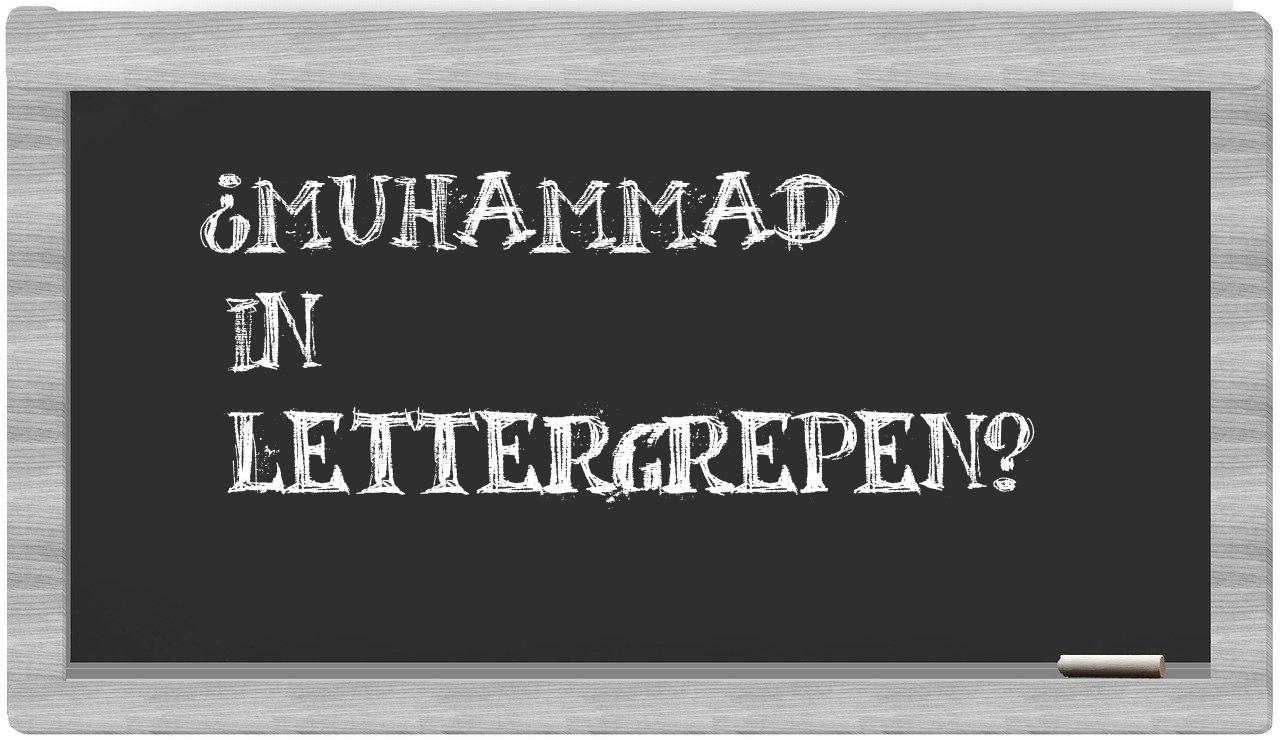 ¿MUHAMMAD
IN
LETTERGREPEN?